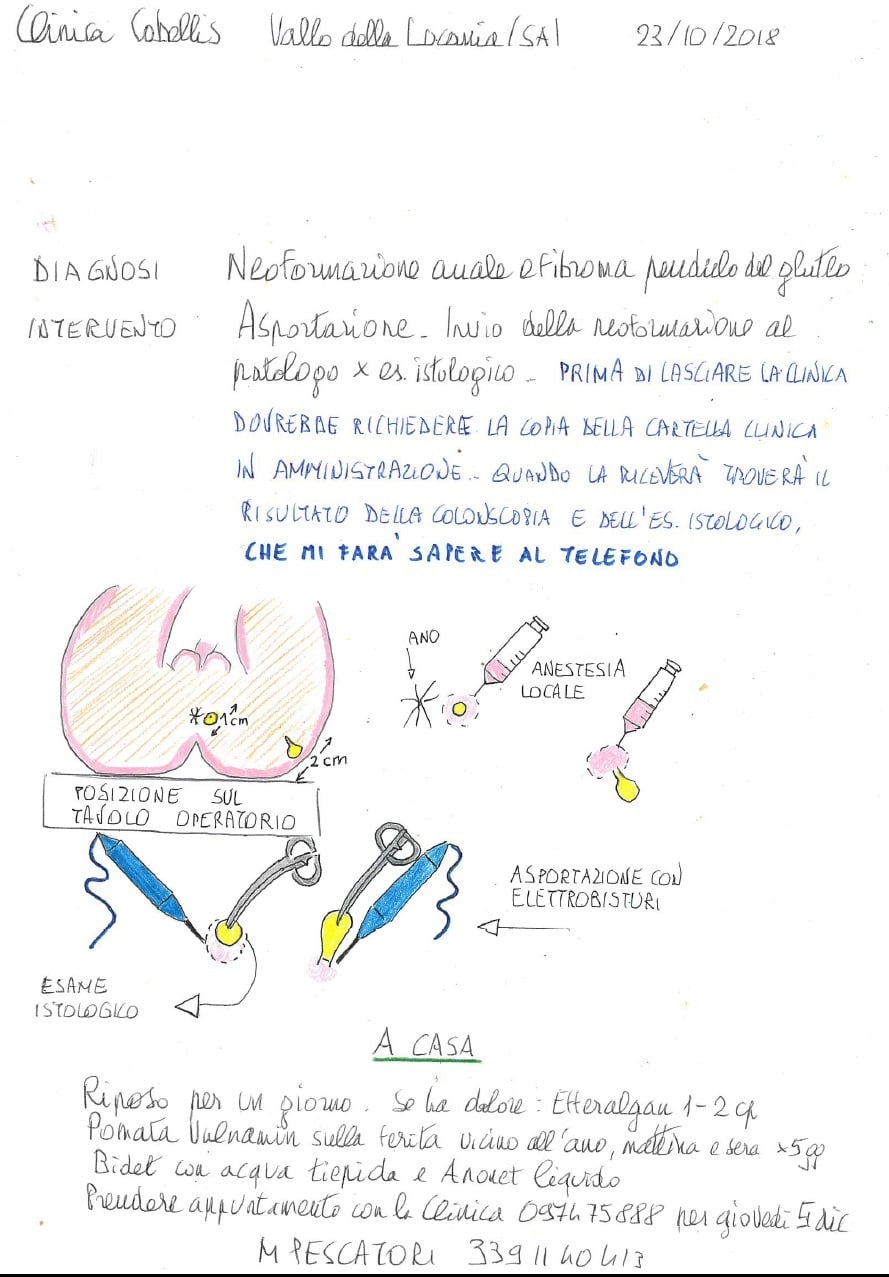 Clinica Cobellis Vallo della Lucania (SA) 23/10/2018
DIAGNOSI Neoformazione anale e fibroma pendulo del gluteo
INTERVENTO Asportazione - Invio della neoformazione al
patologo x es. istologico - PRIMA DI LASCIARE LA CLINICA
DOVREBBE RICHIEDERE LA COPIA DELLA CARTELLA CLINICA
IN AMMINISTRAZIONE - QUANDO LA RICEVERÀ TROVERÀ IL
RISULTATO DELLA COLONSCOPIA E DELL'ES. ISTOLOGICO,
CHE MI FARA' SAPERE AL TELEFONO
ANO
ANESTESIA
LOCALE
1 cm
2 cm
POSIZIONE SUL
TAVOLO OPERATORIO
ASPORTAZIONE CON
ELETTROBISTURI
ESAME
ISTOLOGICO
A CASA
Riposo per un giorno. Se ha dolore: Efferalgan 1-2 cp
Pomata Vulnamin sulla ferita vicino all'ano, mattina e sera x 5 gg
Bidet con acqua tiepida e Anonet liquido
Prendere appuntamento con la Clinica 0974 75888 per giovedì dic
M PESCATORI 339 11 40 413